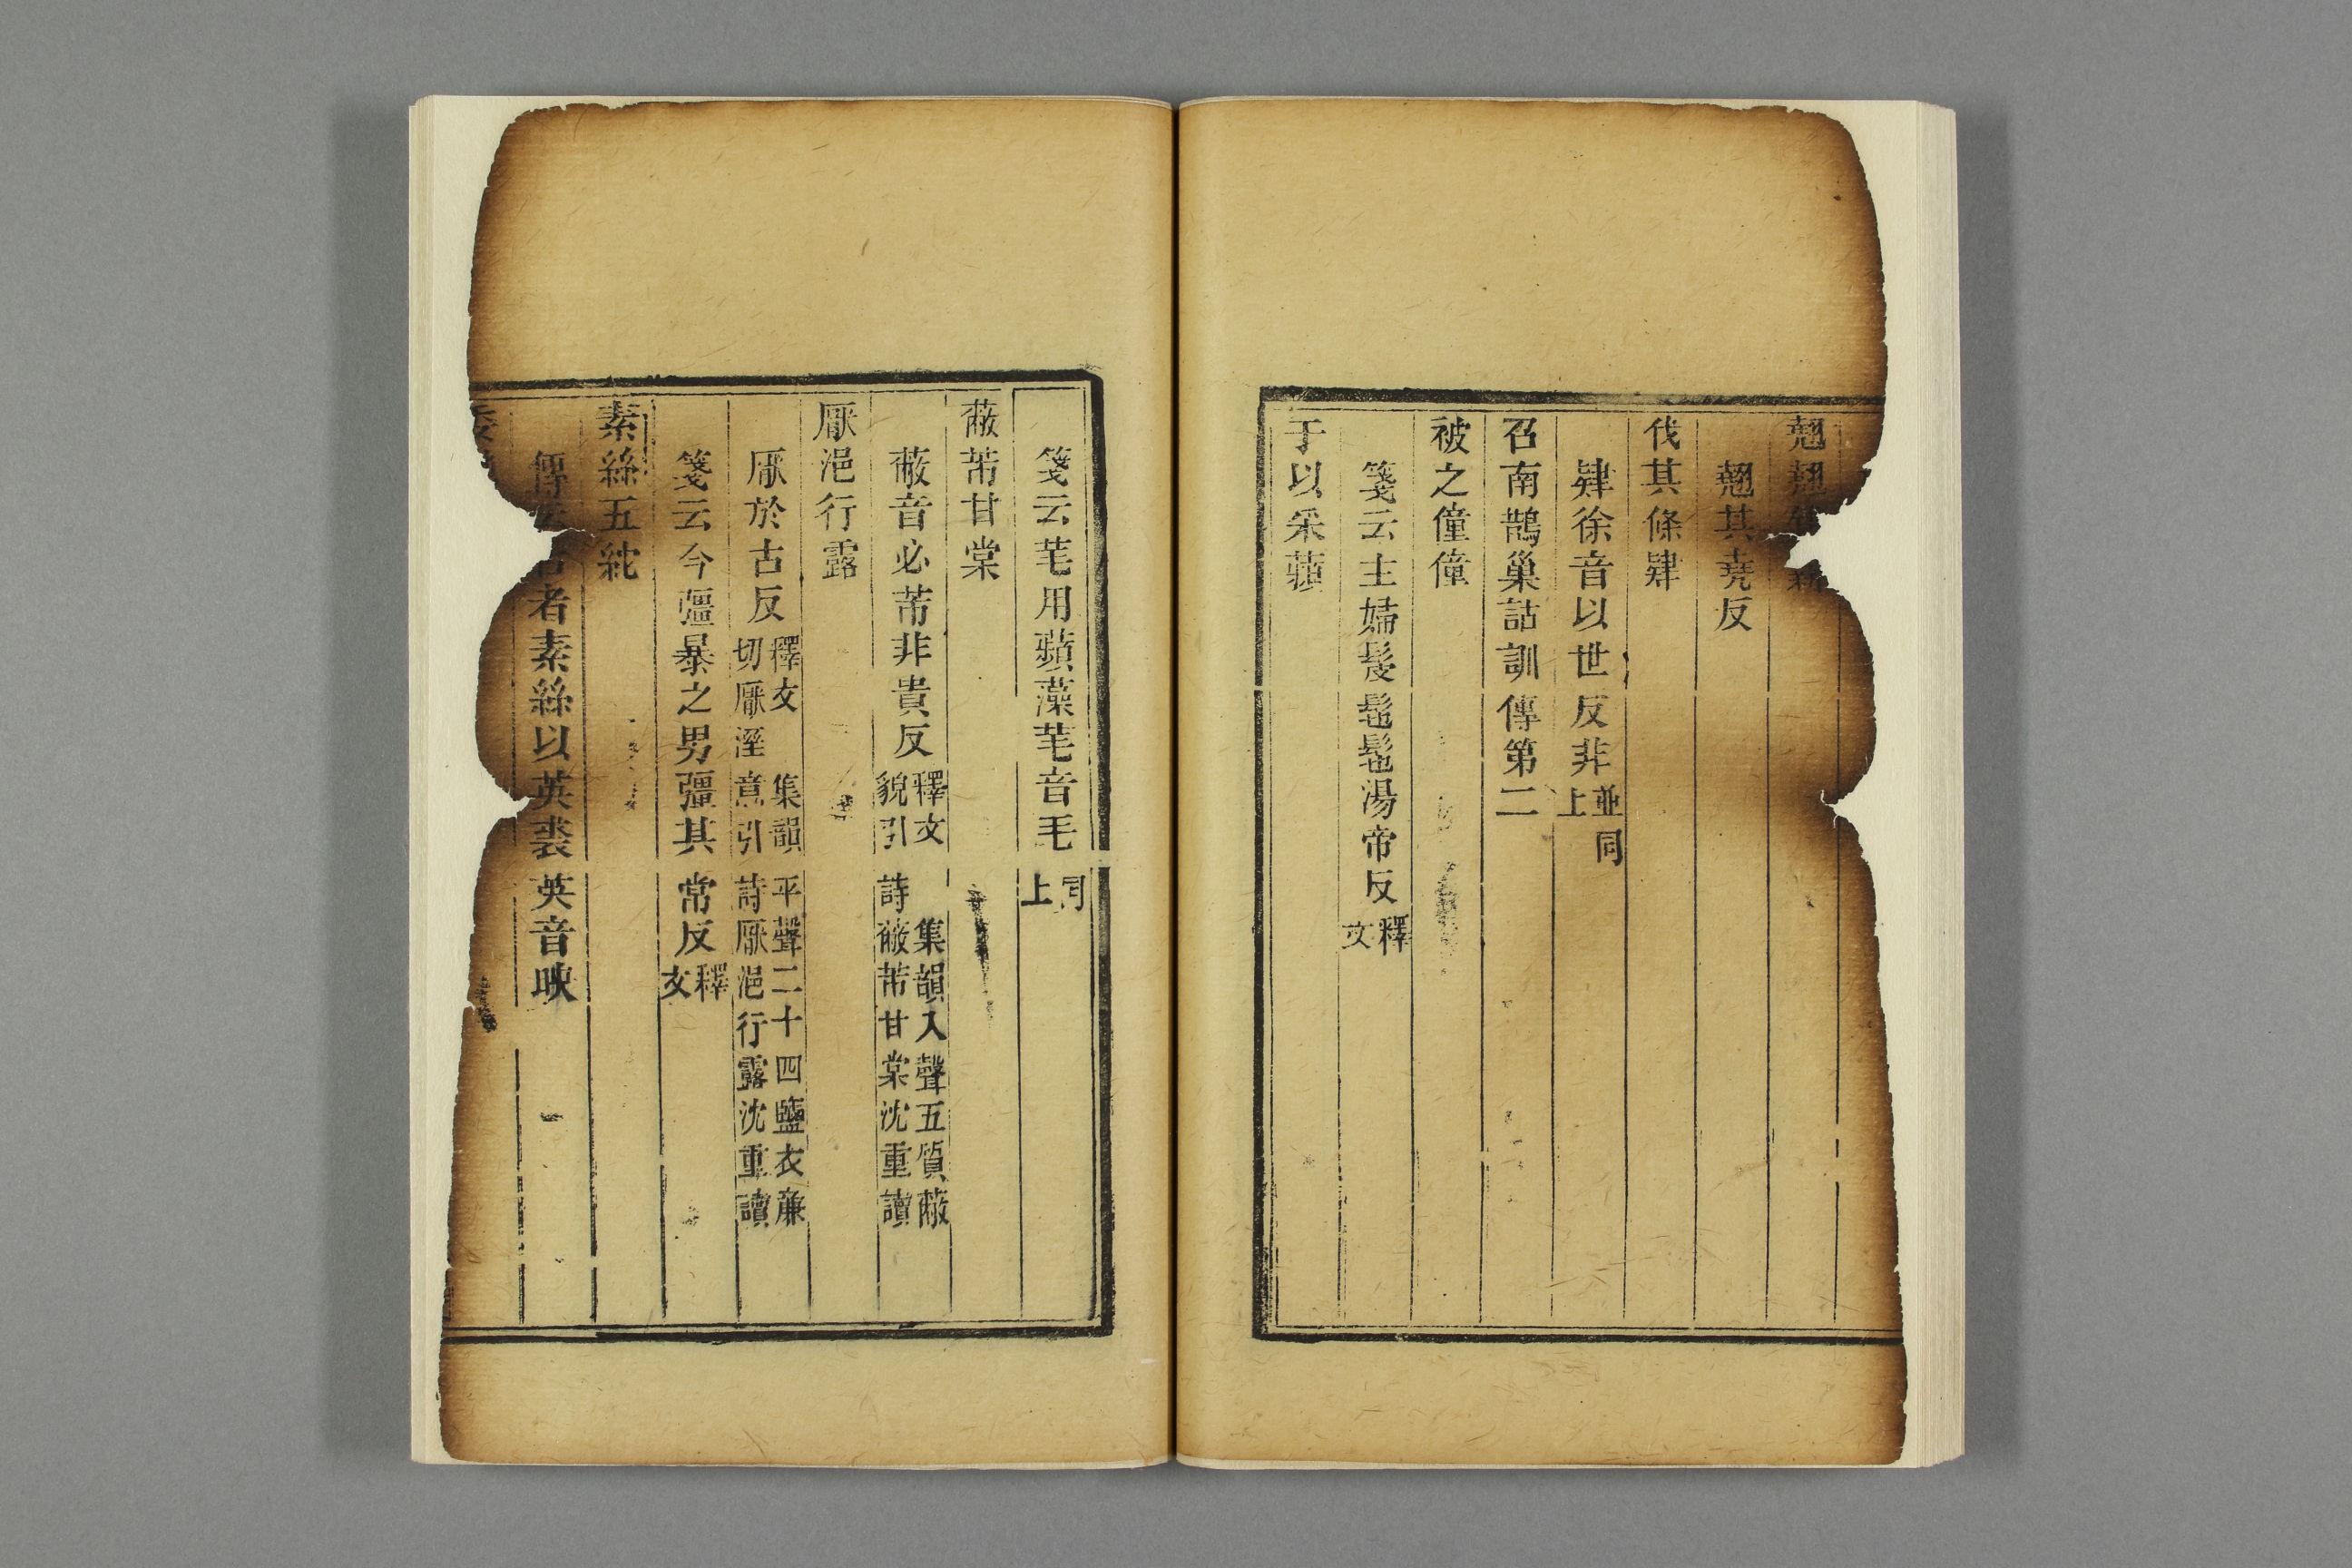 翹翹錯薪
翹其堯反
伐其條肄
肄徐音以世反非並同上
召南鵲巢詁訓傳第二
被之僮僮
箋云主婦髲髢髢湯帝反釋文
于以采蘋
箋云芼用蘋藻芼音毛同上
蔽芾甘棠
蔽音必芾非貴反釋文 集韻入聲五質蔽貌引詩蔽芾甘棠沈重讀
厭浥行露
厭於古反釋文 集韻平聲二十四鹽衣廉切厭浥意引詩厭浥行露沈重讀
箋云今彊暴之男彊其常反釋文
素絲五紽
傳 古者素絲以英裘英音映
委